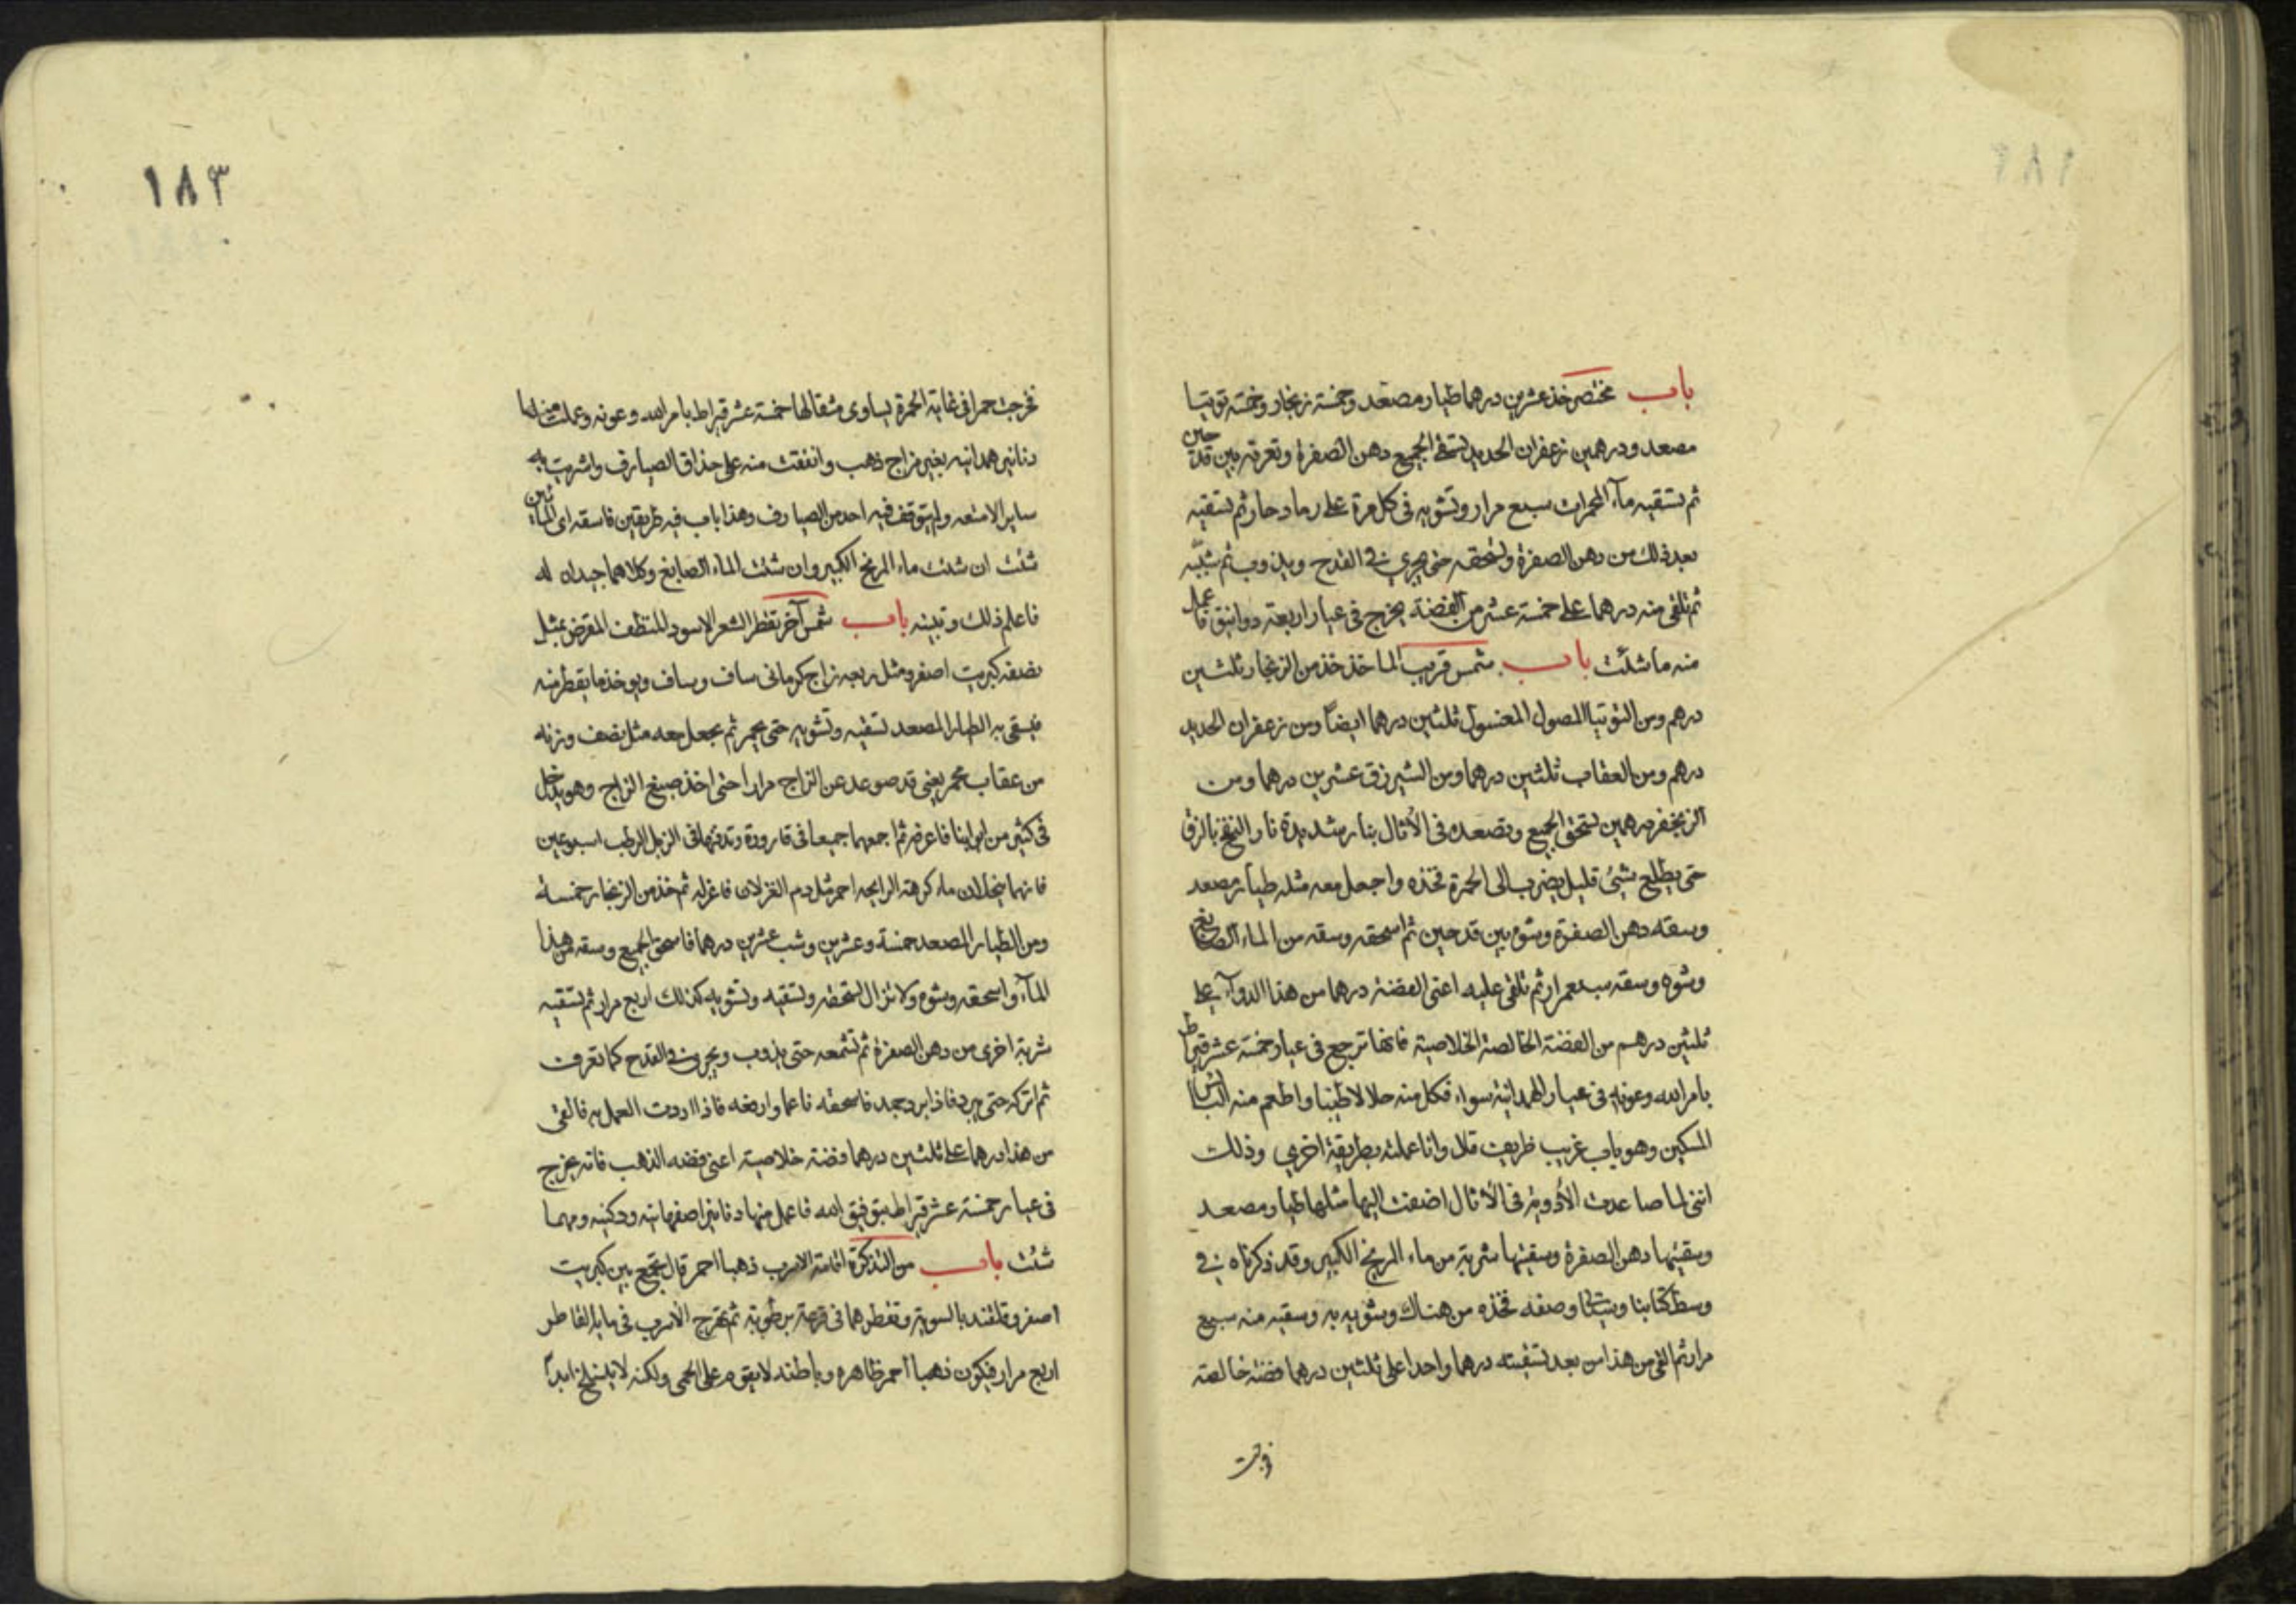 باب مختصر خذ عشرين درهما طيار مصعد وخمسة زنجار وخمسة توتيا
مصعد ودرهمين زعفران الحديد تسحق الجميع دهن الصفرة وتعرقه بين قدحين
ثم تسقيه مآء المحرات سبع مرار وتشويه فى كل مرة على رماد حار ثم تسقيه
بعد ذلك من دهن الصفرة وتسحقه حتى يجري في القدح ويذوب ثم
ثم تلقى منه درهما على خمسة عشر من الفضة يخرج فى عيار اربعة دوانيق فاعمل
منه ما شئت باب شمس قريب الماخذ خذ من الزنجار ثلثين
درهم ومن التوتيا المصول المغسول ثلثين درهما ايضاً ومن زعفران الحديد
درهم ومن العقاب ثلثين درهما ومن الشيرزق عشرين درهما ومن
الزنجفر درهمين تسحق الجميع وتصعده فى الأثال بنار شديدة نار النفخ بالزق
حتى يطلع شئ قليل يضرب الى الحمرة فخذه واجعل معه مثله طيار مصعد
وسقه دهن الصفرة وشوه بين قدحين ثم اسحقه وسقه من الماء الصابغ
وشوه وسقه سبع مرار ثم تلقى عليه اعنى الفضة درهما من هذا الدوآء على
ثلثين درهم من الفضة الخالصة الخلاصية فانها ترجع فى عيار خمسة عشر قيراط
بامر الله وعونه فى عيار الهمدانية سواء فكل منه حلالا طيبا واطعم منه البائس
المسكين وهو باب غريب ظريف قال وانا عملته بطريقة اخرى وذلك
اننى لما صاعدت الأدوية فى الأثال اضفت اليها مثلها طيار مصعد
وسقيتها دهن الصفرة وسقيتها شربة من ماء المريخ الكبير وقد ذكرناه في
وسط كتابنا وبينا وصفه فخذه من هناك وشويه به وسقيه منه سبع
مرار ثم القى من هذا من بعد تسقيته درهما واحدا على ثلثين درهما فضة خالصة
فخرجت
١٨٣
فخرجت حمرا فى غاية الحمرة يساوى مثقالها خمسة عشر قيراط بامر الله وعونه وعملت منها
دنانير همدانيه بغير مزاج ذهب وانفقت منه على حذاق الصيارف واشريت به
ساير الامتعه ولم يتوقف فيه احد من الصيارف وهذا باب فيه طريقين فاسقه اى المائين
شئت ان شئت ماء المريخ الكبير وان شئت الماء الصابغ وكلاهما جيدان له
فاعلم ذلك وتبينه باب شمس آخر تقطر الشعر الاسود المنظف المقرض بمثل
نصفه كبريت اصفر ومثل ربعه زاج كرمانى ساف وساف ويوخذ ما يقطر منه
فيسقى به الطيار المصعد تسقيه وتشويه حتى يحمر ثم يجعل معه مثل نصف وزنه
من عقاب محمر يعنى قد صوعد عن الزاج مرارا حتى اخذ صبغ الزاج وهو يدخل
فى كثير من ابوابنا فاعرفه ثم اجمعهما جميعا فى قارورة وتدفنها فى الزبل الرطب اسبوعين
فانهما ينحلان ماء كرهه الرايحه احمر مثل دم الغزلان فاعزله ثم خذ من الزنجار خمسة
ومن الطيار المصعد خمسة وعشرين وشب عشرين درهما فاسحق الجميع وسقه من هذا
المآء واسحقه وشوه ولا تزال تسحقه وتسقيه وتشويه كذلك اربع مرار ثم تسقيه
شربة اخرى من دهن الصفرة ثم تشمعه حتى يذوب ويجرى فى القدح كما تعرف
ثم اتركه حتى يبرد فاذا برد جمد فاسحقه ناعما وارفعه فاذا اردت العمل به فالقى
من هذا درهما على ثلثين درهما فضة خلاصية اعنى فضه الذهب فانه يخرج
فى عيار خمسة عشر قيراط بتوفيق الله فاعمل منها دنانير اصفهانية وركنيه ومهما
شئت باب من التذكرة اقامة الاسرب ذهبا احمر قال تجمع بين كبريت
اصفر وقلقند بالسوية وتقطرهما فى قرعة برطوبة ثم تفرج الأسرب فى مايه القاطر
اربع مرار فيكون ذهبا احمر ظاهره وباطنه لا يقوم على الحمى ولكنه لا ينسلخ ابداً